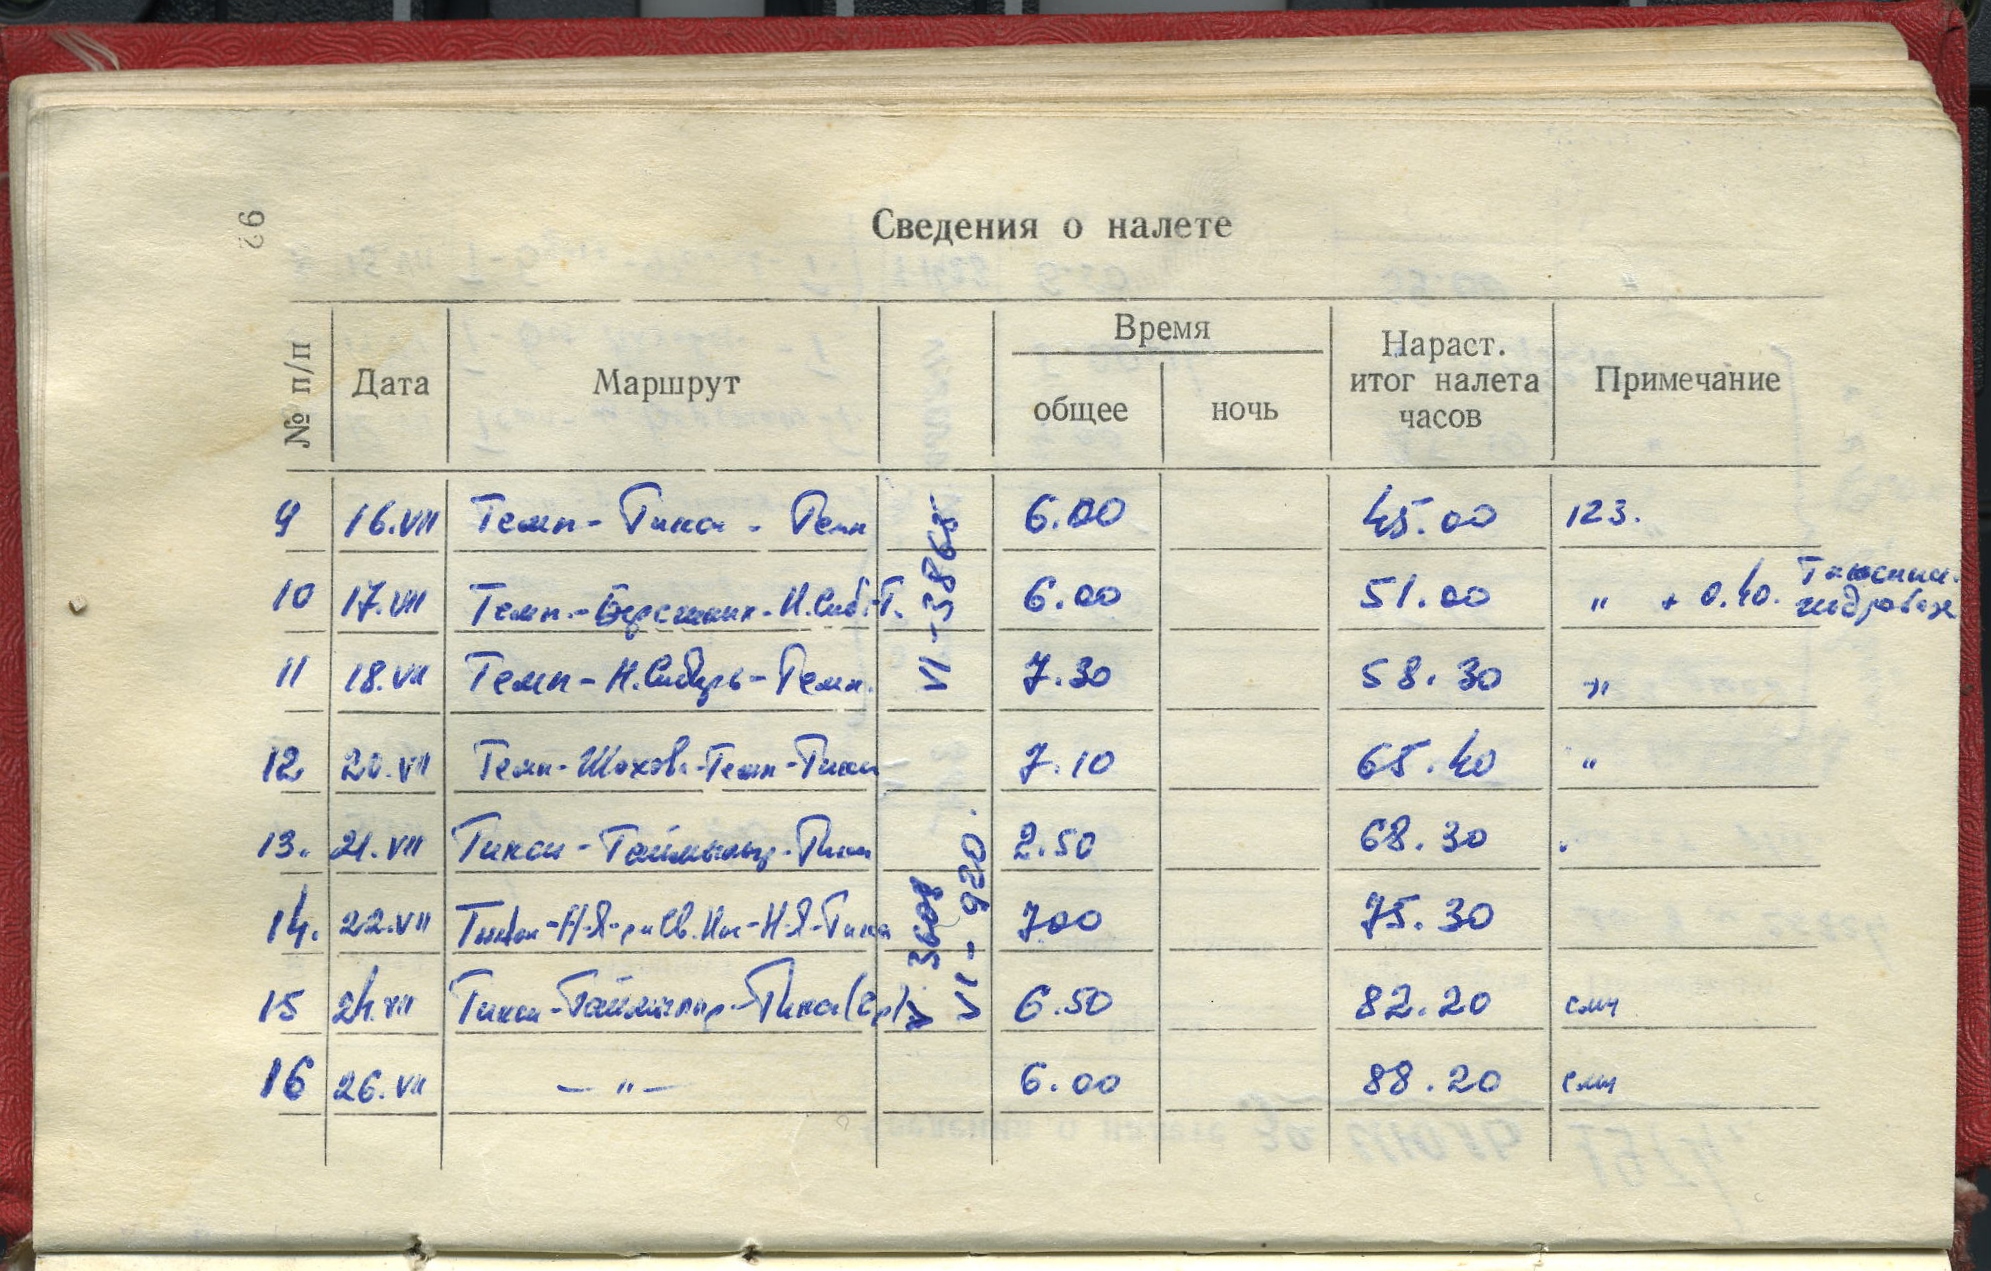 92
Сведения о налете
№ п/п Дата Маршрут Время общее ночь Нараст. итог налета часов Примечание
9 16.VII Темп - Тикси - Темп 6.00 45.00 123.
10 17.VII Темп.- - Н.Сиб.-Т. 6.00 51.00 " + 0.40.
11 18.VII Темп - Н.Сибирь - Темп. 7.30 58.30 "
VI-3865
12. 20.VII Темп - Жохова - Темп - Тикси 7.10 65.40 "
13. 21.VII Тикси - Таймылыр - Тикси 2.50 68.30
14. 22.VII Тикси - Н-Я - Св. Нос - Н-Я - Тикси 700 75.30
15 24.VII Тикси - Таймылыр - Тикси 6.50 82.20 смч
V. 3608
VI - 920.
16 26.VII — " — 6.00 88.20 смч